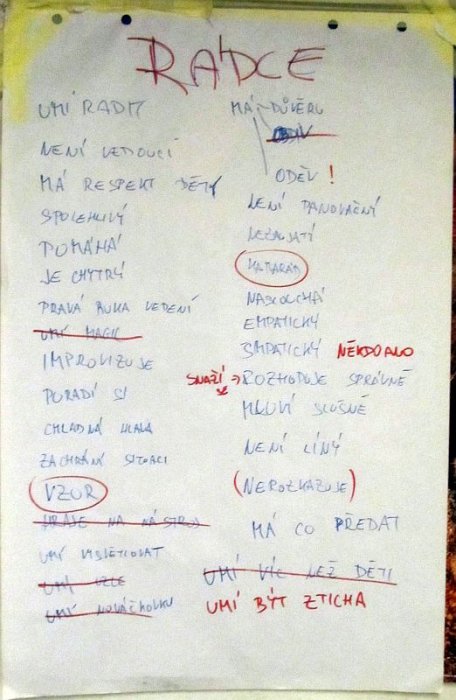 RÁDCE
UMÍ RADIT
NENÍ VEDOUCÍ
MÁ RESPEKT DĚTÍ
SPOLEHLIVÝ
POMÁHÁ
JE CHYTRÝ
PRAVÁ RUKA VEDENÍ
UMÍ MAGIC
IMPROVIZUJE
PORADÍ SI
CHLADNÁ HLAVA
ZACHRÁNÍ SITUACI
VZOR
HRAJE NA NÁSTROJ
UMÍ VYSVĚTLOVAT
UMÍ UZLE
UMÍ NOVÁČKOVKU
MÁ DŮVĚRU
ODĚV
ODĚV!
NENÍ PANOVAČNÝ
NEZAUJATÝ
KAMARÁD
NASLOUCHÁ
EMPATICKÝ
SYMPATICKÝ NĚKDO ANO
SNAŽÍ SE → ROZHODUJE SPRÁVNĚ
MLUVÍ SLUŠNĚ
NENÍ LÍNÝ
(NEROZKAZUJE)
MÁ CO PŘEDAT
UMÍ VÍC NEŽ DĚTI
UMÍ BÝT ZTICHA